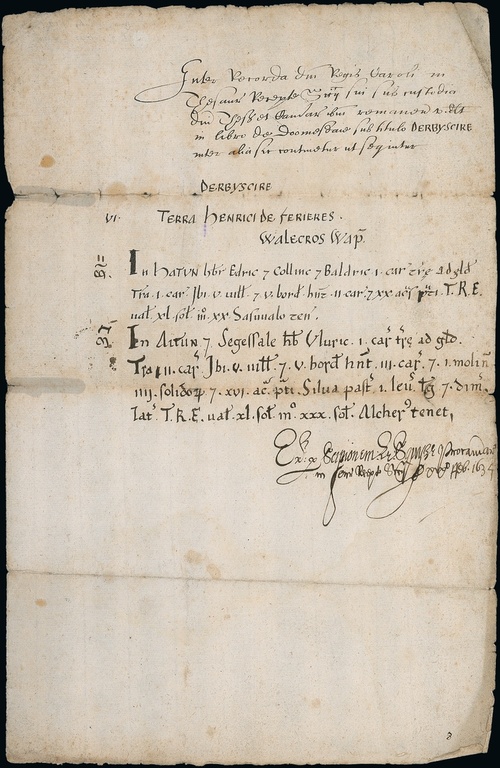 Inter Recorda dni Regis Caroli in
Thesaur Recepte Scc̃ij sui sub custodia
dni Thes̃ et Camerar ibm remanen vizt
in libro de Doomesdaie sub titulo DERBYSCIRE
inter alia sic continetur ut sequitur
DERBYSCIRE
VI. TERRA HENRICI DE FERIERES.
WALECROS WAP̃.
M̃
In HATUN hb̃r Edric ⁊ Collinc ⁊ Baldric .i. car̃ tr̃e ad gld̃
Tra .i. car̃ Ibi .v. uill̃ ⁊ .v. bord̃ hñt .ii. car ⁊ xx ac̃s p̃ti. T.R.E.
ual̃ xl. sol̃ m̊. xx Sasuualo ten̄.
M̃
In Aitun ⁊ Segessale hb̃ Uluric. i. car̃ tr̃e ad gld̃.
Tra iii. car̃. Ibi. v. uill̃ ⁊. v. bord̃ hñt. iii. car̃. ⁊. i. molin̄
iiii. solidoꝝ ⁊. xvi. ac̃. p̃ti. Silua past̃ i. leu̅ lg̃ ⁊. dim̃.
lat̃. T.R.E. ual̃. xl. sol̃ m̊. xxx. sol̃. Alcher tenet,
Ex p Scipionem Le Squyer
Feb. 1634